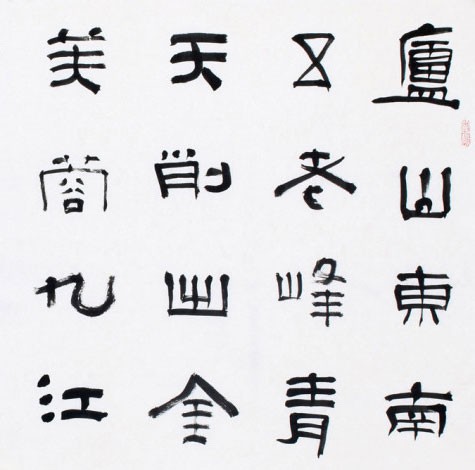 廬山東南
五老峰青
天削出金
芙蓉九江